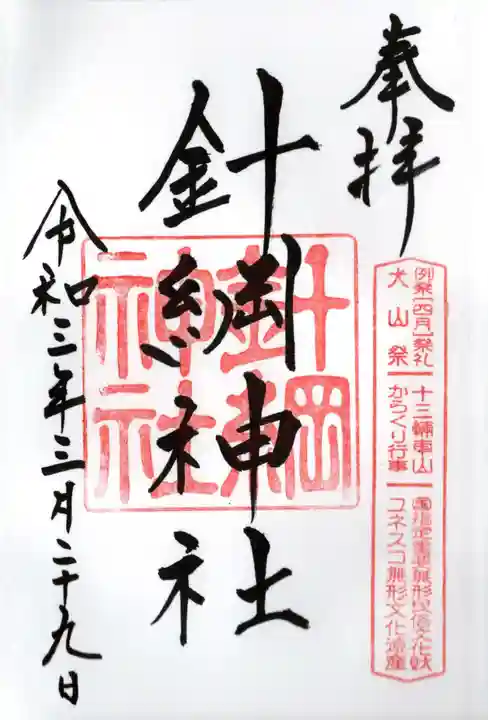 奉拝
例祭[四月]祭礼
犬山祭
十三輛車山
からくり行事
国指定重要無形民俗文化財
ユネスコ無形文化遺産
針綱神社
針綱神社
令和三年三月二十九日